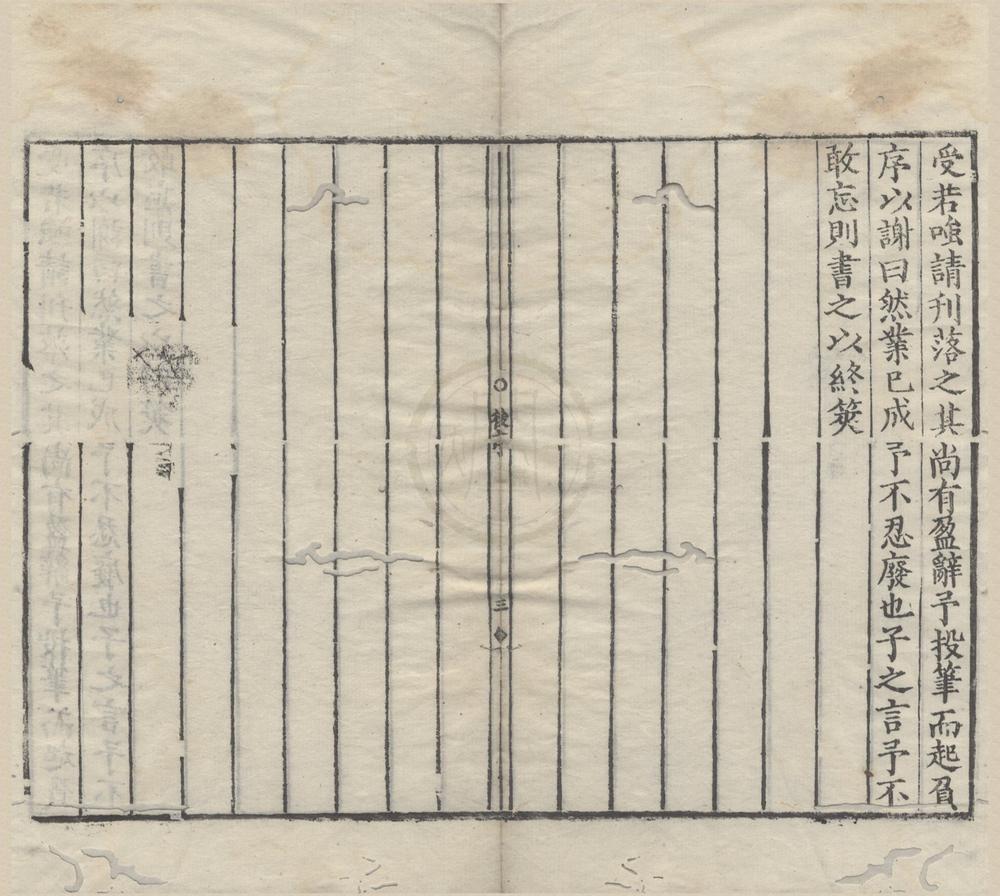 受若嗤請刊落之其尚有盈辭予投筆而起負
序以謝曰然業已成予不忍廢也子之言予不
敢忘則書之以終筴
後序
三